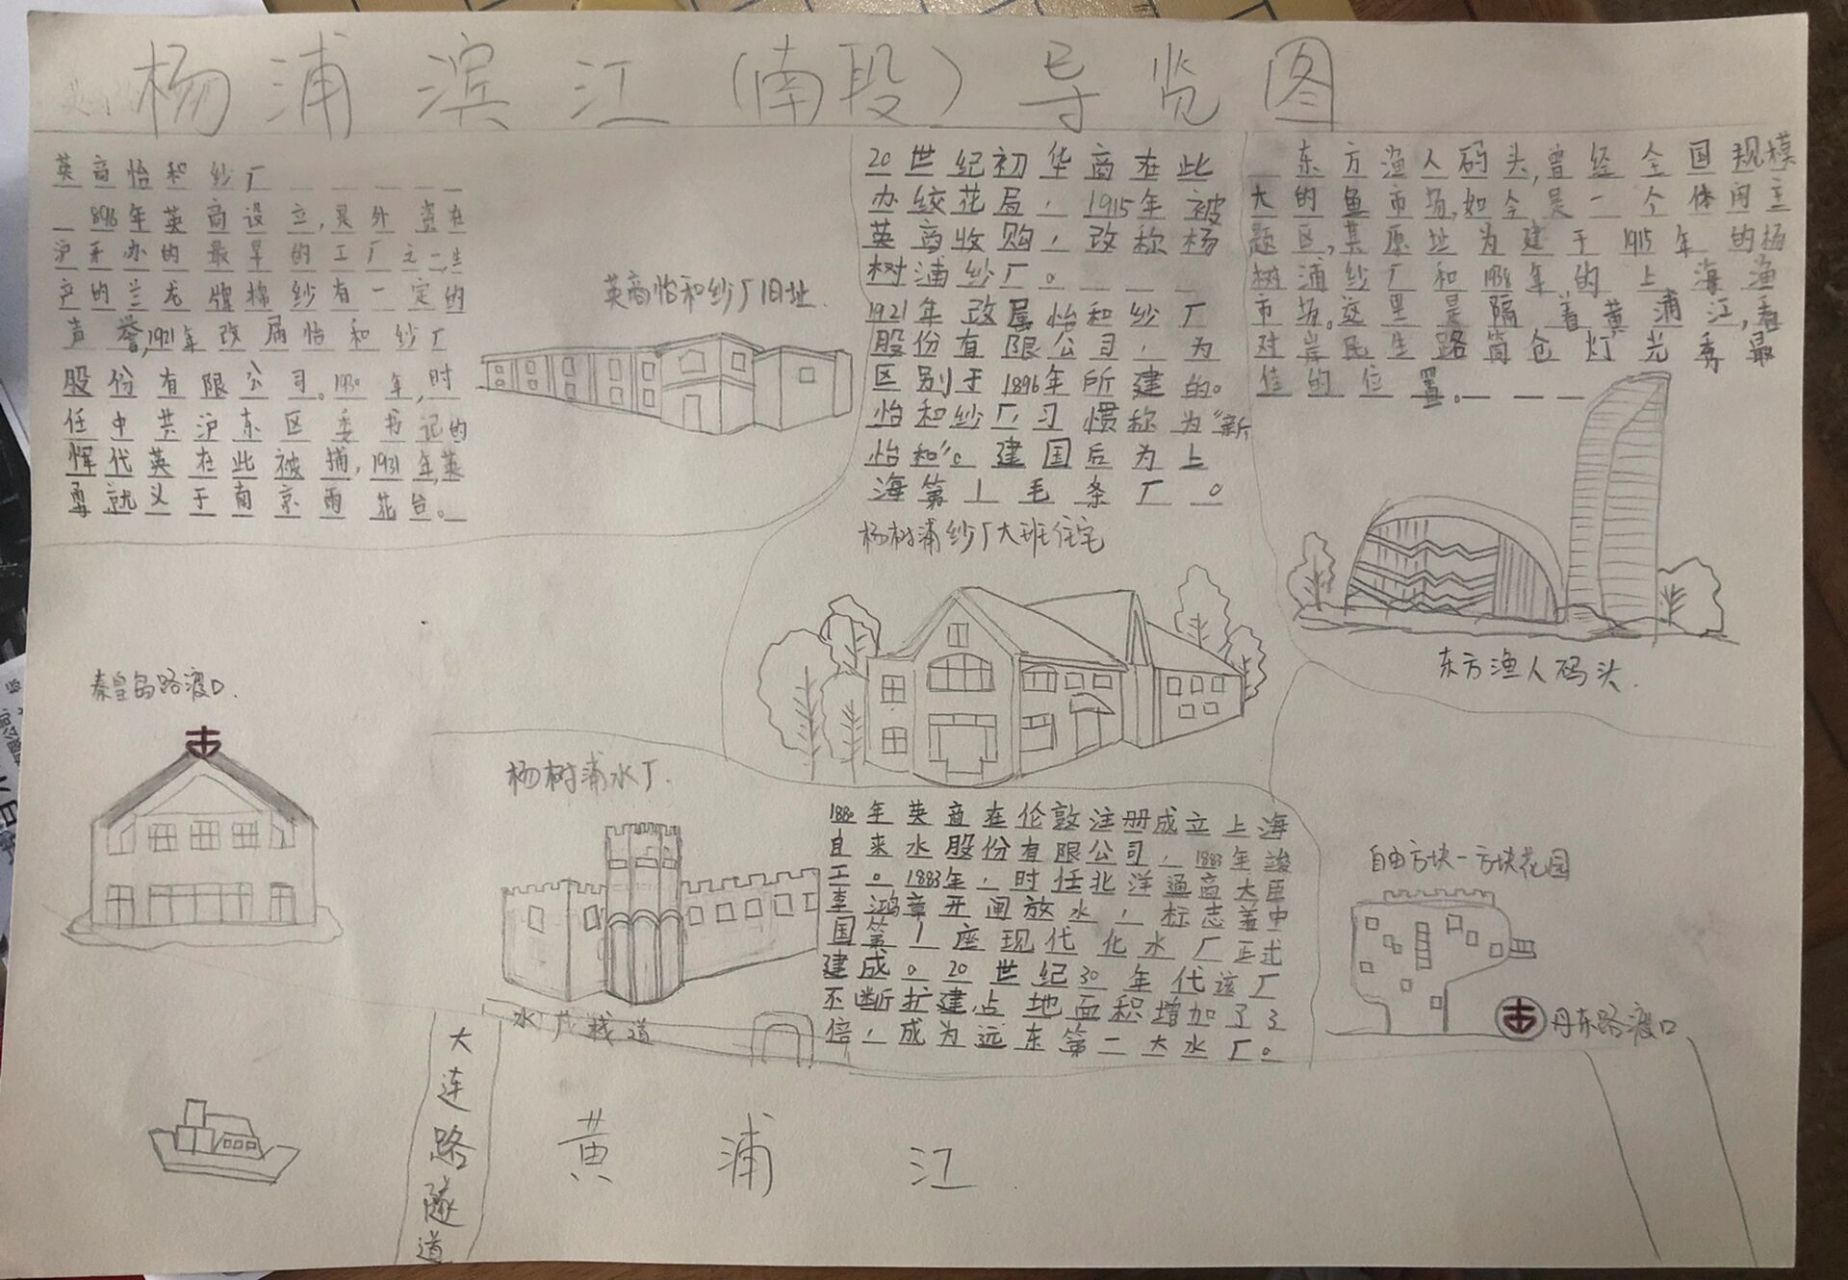 杨浦滨江(南段)导览图
英商怡和纱厂
1896年英商设立,是外资在
沪开办的最早的工厂之一,生
产的兰龙牌棉纱有一定的
声誉,1921年改属怡和纱厂
股份有限公司。1930年,时
任中共沪东区委书记的
恽代英在此被捕,1931年英
勇就义于南京雨花台。
英商怡和纱厂旧址.
20世纪初华商在此
办绞花局,1915年被
英商收购,改称杨
树浦纱厂。
1921年改属怡和纱厂
股份有限公司,为
区别于1896年所建的。
怡和纱厂,习惯称为"新
怡和"。建国后为上
海第1毛条厂。
杨树浦纱厂大班住宅
东方渔人码头,曾经全国规模
大的鱼市场,如今是一个休闲主
题区,其原址为建于1915年的杨
树浦纱厂和1936年的上海渔
市场。这里是隔着黄浦江,看
对岸民生路筒仓灯光秀最
佳的位置。
东方渔人码头.
秦皇岛路渡口.
杨树浦水厂.
1880年英商在伦敦注册成立上海
自来水股份有限公司,1883年竣
工。1883年,时任北洋通商大臣
李鸿章开闸放水,标志着中
国第1座现代化水厂正式
建成。20世纪30年代该厂
不断扩建,占地面积增加了3
倍,成为远东第二大水厂。
自由方块-方块花园
丹东路渡口
水厂栈道
大连路隧道
黄浦江.